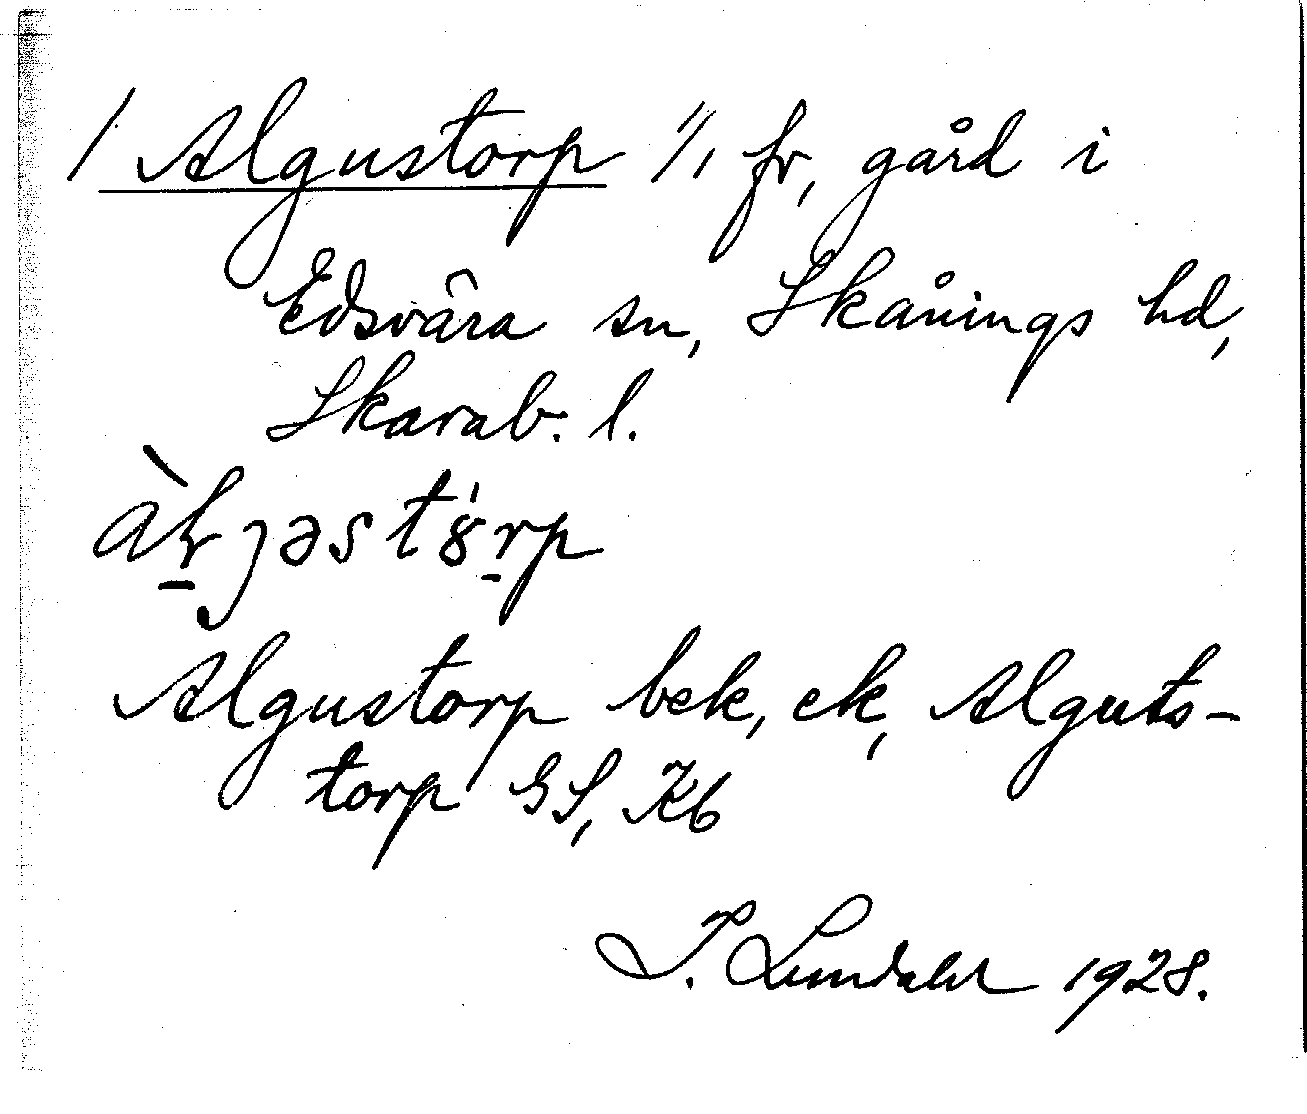 / Algustorp 1/1 fr, gård i
Edsvära sn, Skånings hd,
Skarab. l.
àl̠jəst8̍r̠p
Algustorp bek, ek, Alguts-
torp GS, Kb
I. Lundahl 1928.